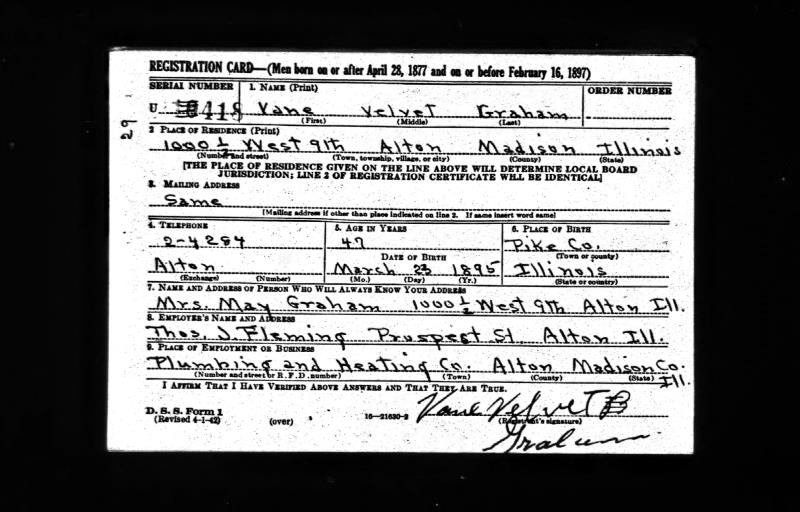 REGISTRATION CARD—(Men born on or after April 28, 1877 and on or before February 16, 1897)
SERIAL NUMBER 1. NAME (Print) ORDER NUMBER
U 418 Vane Velvet Graham
(First) (Middle) (Last)
29
2 PLACE OF RESIDENCE (Print)
1000 ½ West 9th Alton Madison Illinois
(Number and street) (Town, township, village, or city) (County) (State)
[THE PLACE OF RESIDENCE GIVEN ON THE LINE ABOVE WILL DETERMINE LOCAL BOARD
JURISDICTION; LINE 2 OF REGISTRATION CERTIFICATE WILL BE IDENTICAL]
3. MAILING ADDRESS
Same
[Mailing address if other than place indicated on line 2. If same insert word same]
4. TELEPHONE 5. AGE IN YEARS 6. PLACE OF BIRTH
2-4284 47 Pike Co.
DATE OF BIRTH (Town or county)
Alton March 23 1895 Illinois
(Exchange) (Number) (Mo.) (Day) (Yr.) (State or country)
7. NAME AND ADDRESS OF PERSON WHO WILL ALWAYS KNOW YOUR ADDRESS
Mrs. May Graham 1000 ½ West 9th Alton Ill.
8. EMPLOYER'S NAME AND ADDRESS
Thos. J. Fleming Prospect St. Alton Ill.
9. PLACE OF EMPLOYMENT OR BUSINESS
Plumbing and Heating Co. Alton Madison Co.
(Number and street or R. F. D. number) (Town) (County) (State) Ill.
I AFFIRM THAT I HAVE VERIFIED ABOVE ANSWERS AND THAT THEY ARE TRUE.
D. S. S. Form 1
(Revised 4-1-42) (over) 16—21630-2
Vane Velvet
(Registrant's signature)
Graham